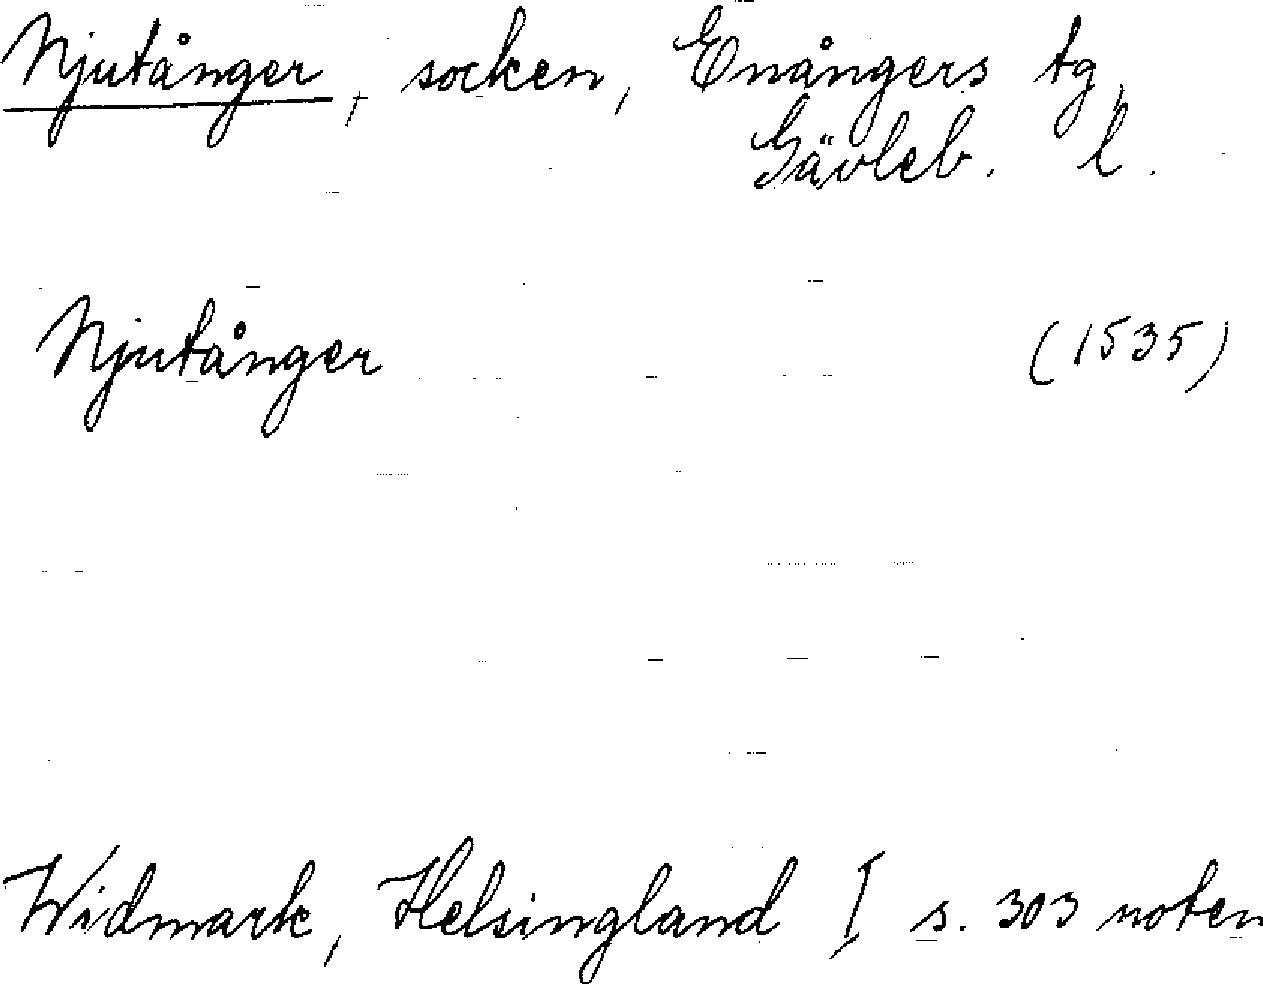 Njutånger, socken, Enångers tg,
Gävleb. l.
Njutånger (1535)
Widmark, Helsingland I s. 303 noten